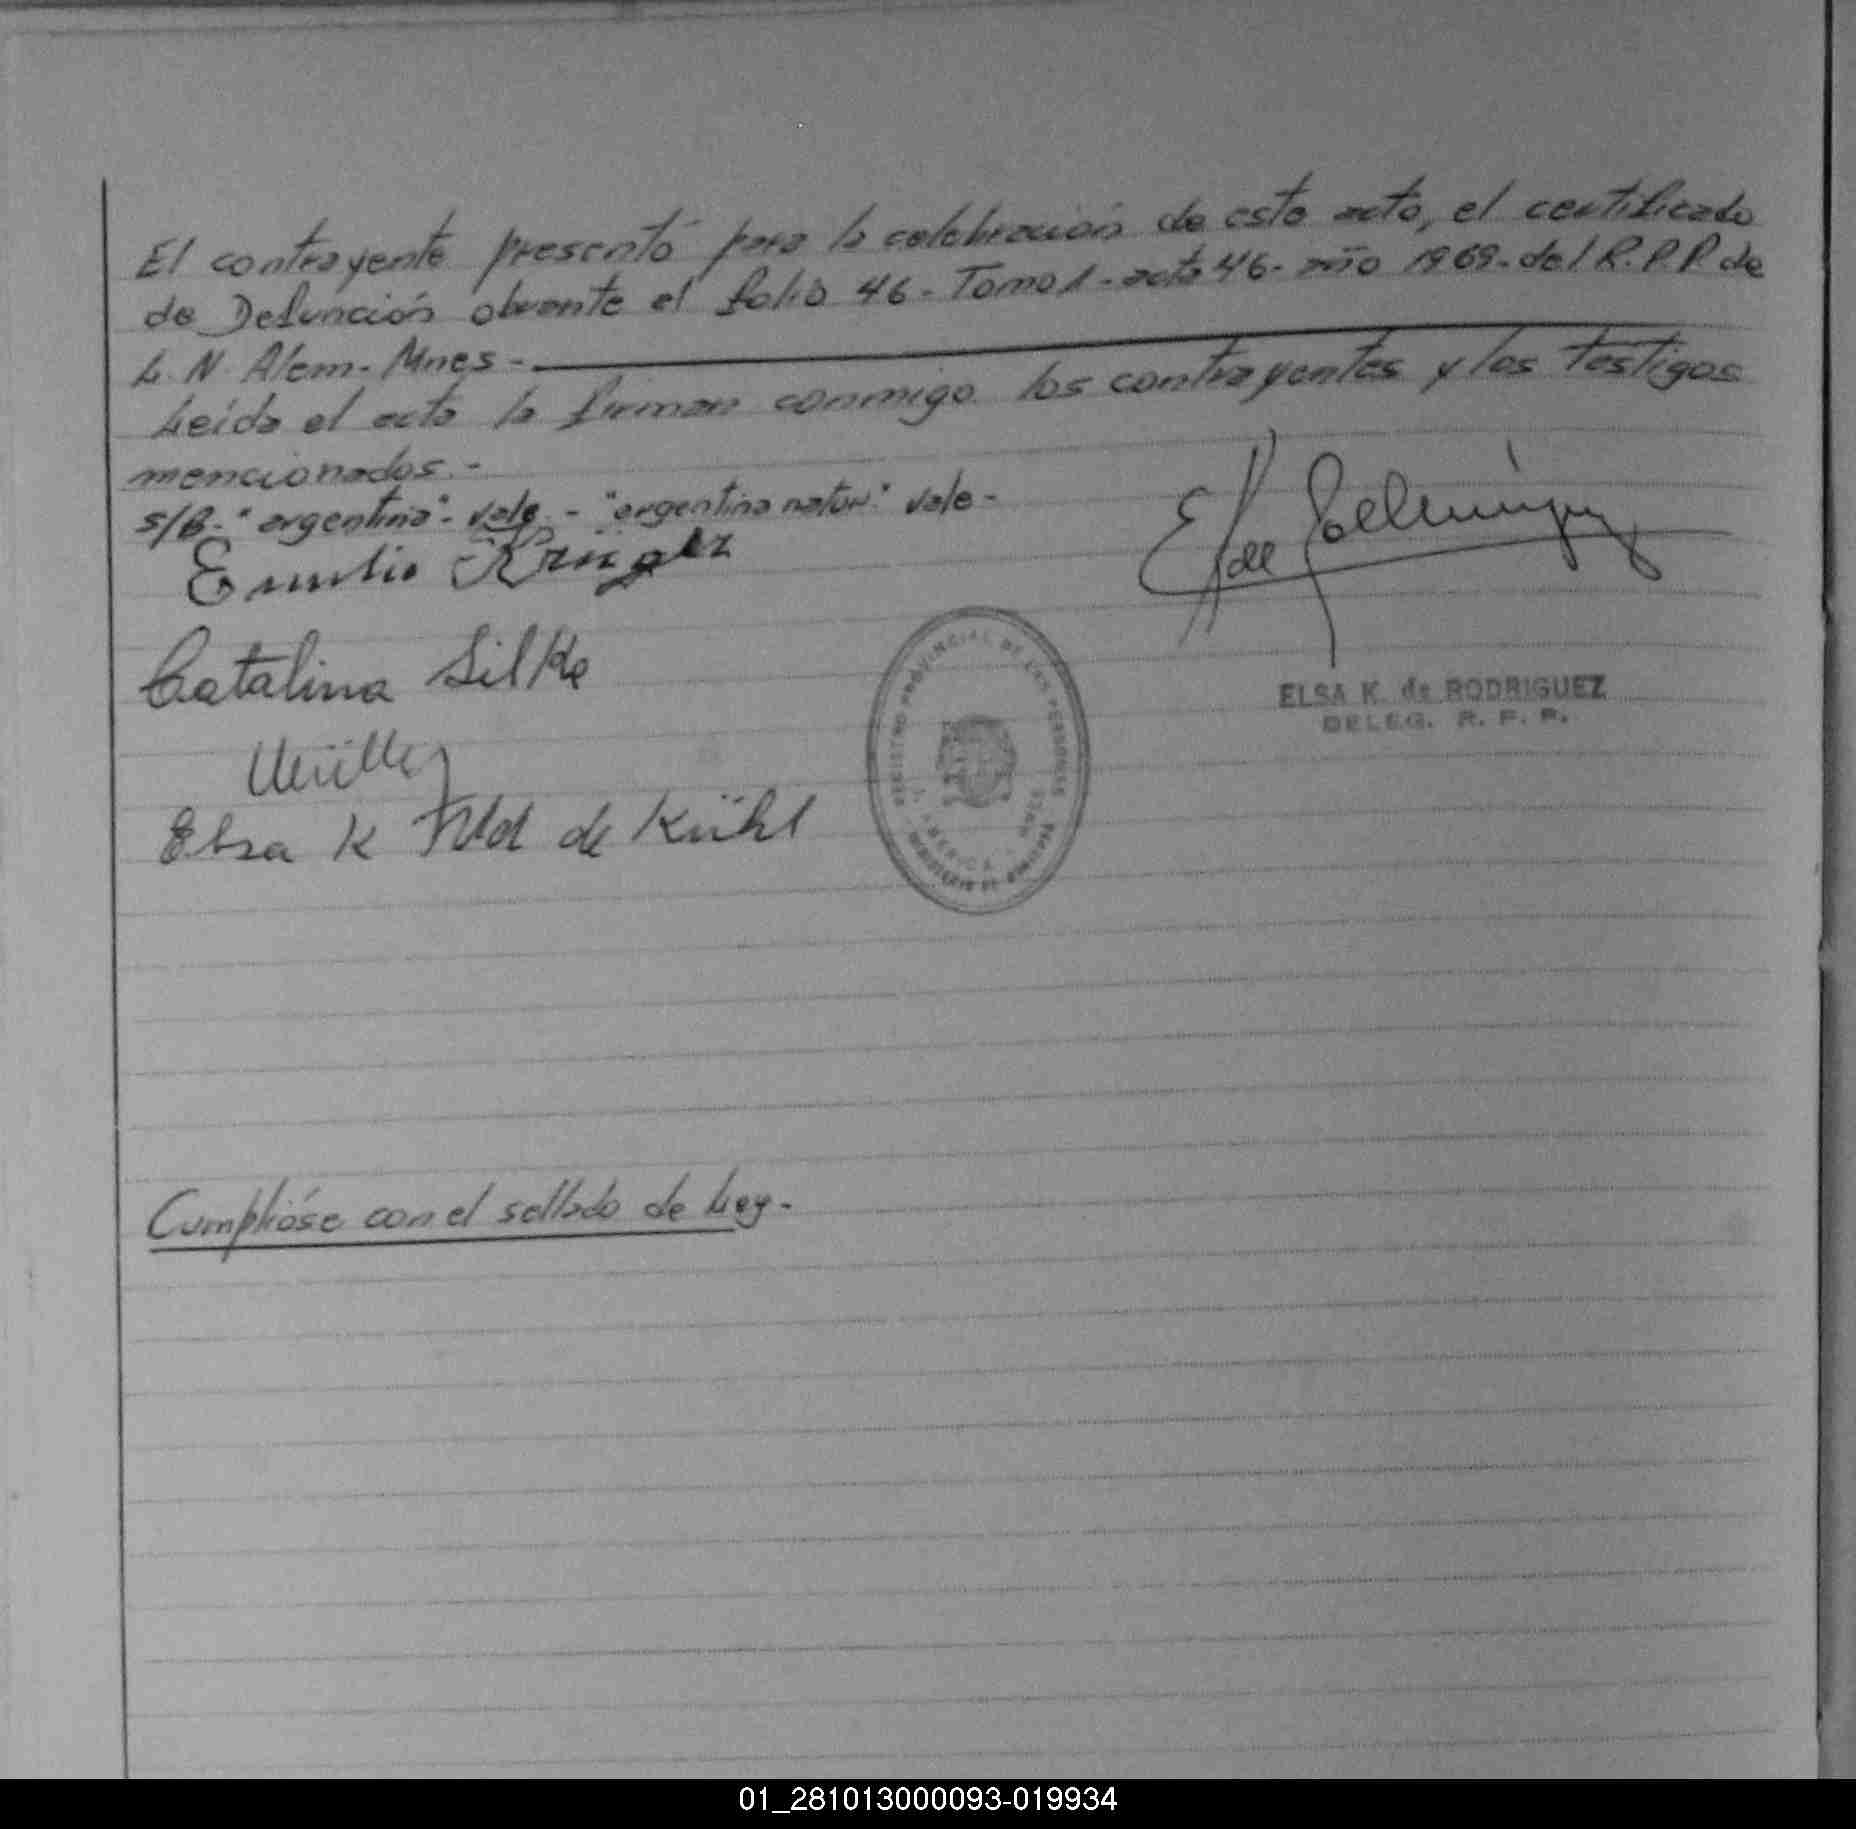 El contrayente presentó para la celebración de este acto, el certificado
de Defunción obrante el folio 46- Tomo 1- acta 46- año 1969- del R.P.P. de
L. N. Alem- Mnes-
Leída el acta la firman conmigo los contrayentes y los testigos
mencionados.-
s/B- "argentina"- vale - "argentina natur." vale-
Emilio Krüger
Catalina Silke
Müller
Elsa K de Kühl
E de
ELSA K. de RODRIGUEZ
DELEG. R. P. P.
REGISTRO PROVINCIAL DE LAS PERSONAS
MINISTERIO DE GOBIERNO
Cumplióse con el sellado de Ley-
01_281013000093-019934